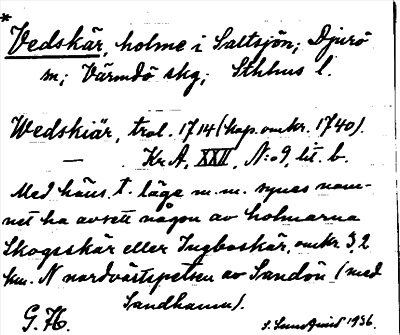 *
Vedskär, holme i Saltsjön; Djurö
sn; Värmdö skg; Sthlms l.
Wedskiär, trol. 1714 (kop. omkr. 1740).
— Kr A, XXII, N:o 9, lit. b.
Med häns. t. läge m. m. synes nam-
net ha avsett någon av holmarna
Skogsskär eller Ingboskär, omkr. 3,2
km. N nordvästspetsen av Sandön (med
Sandhamn).
G. H. 1936.